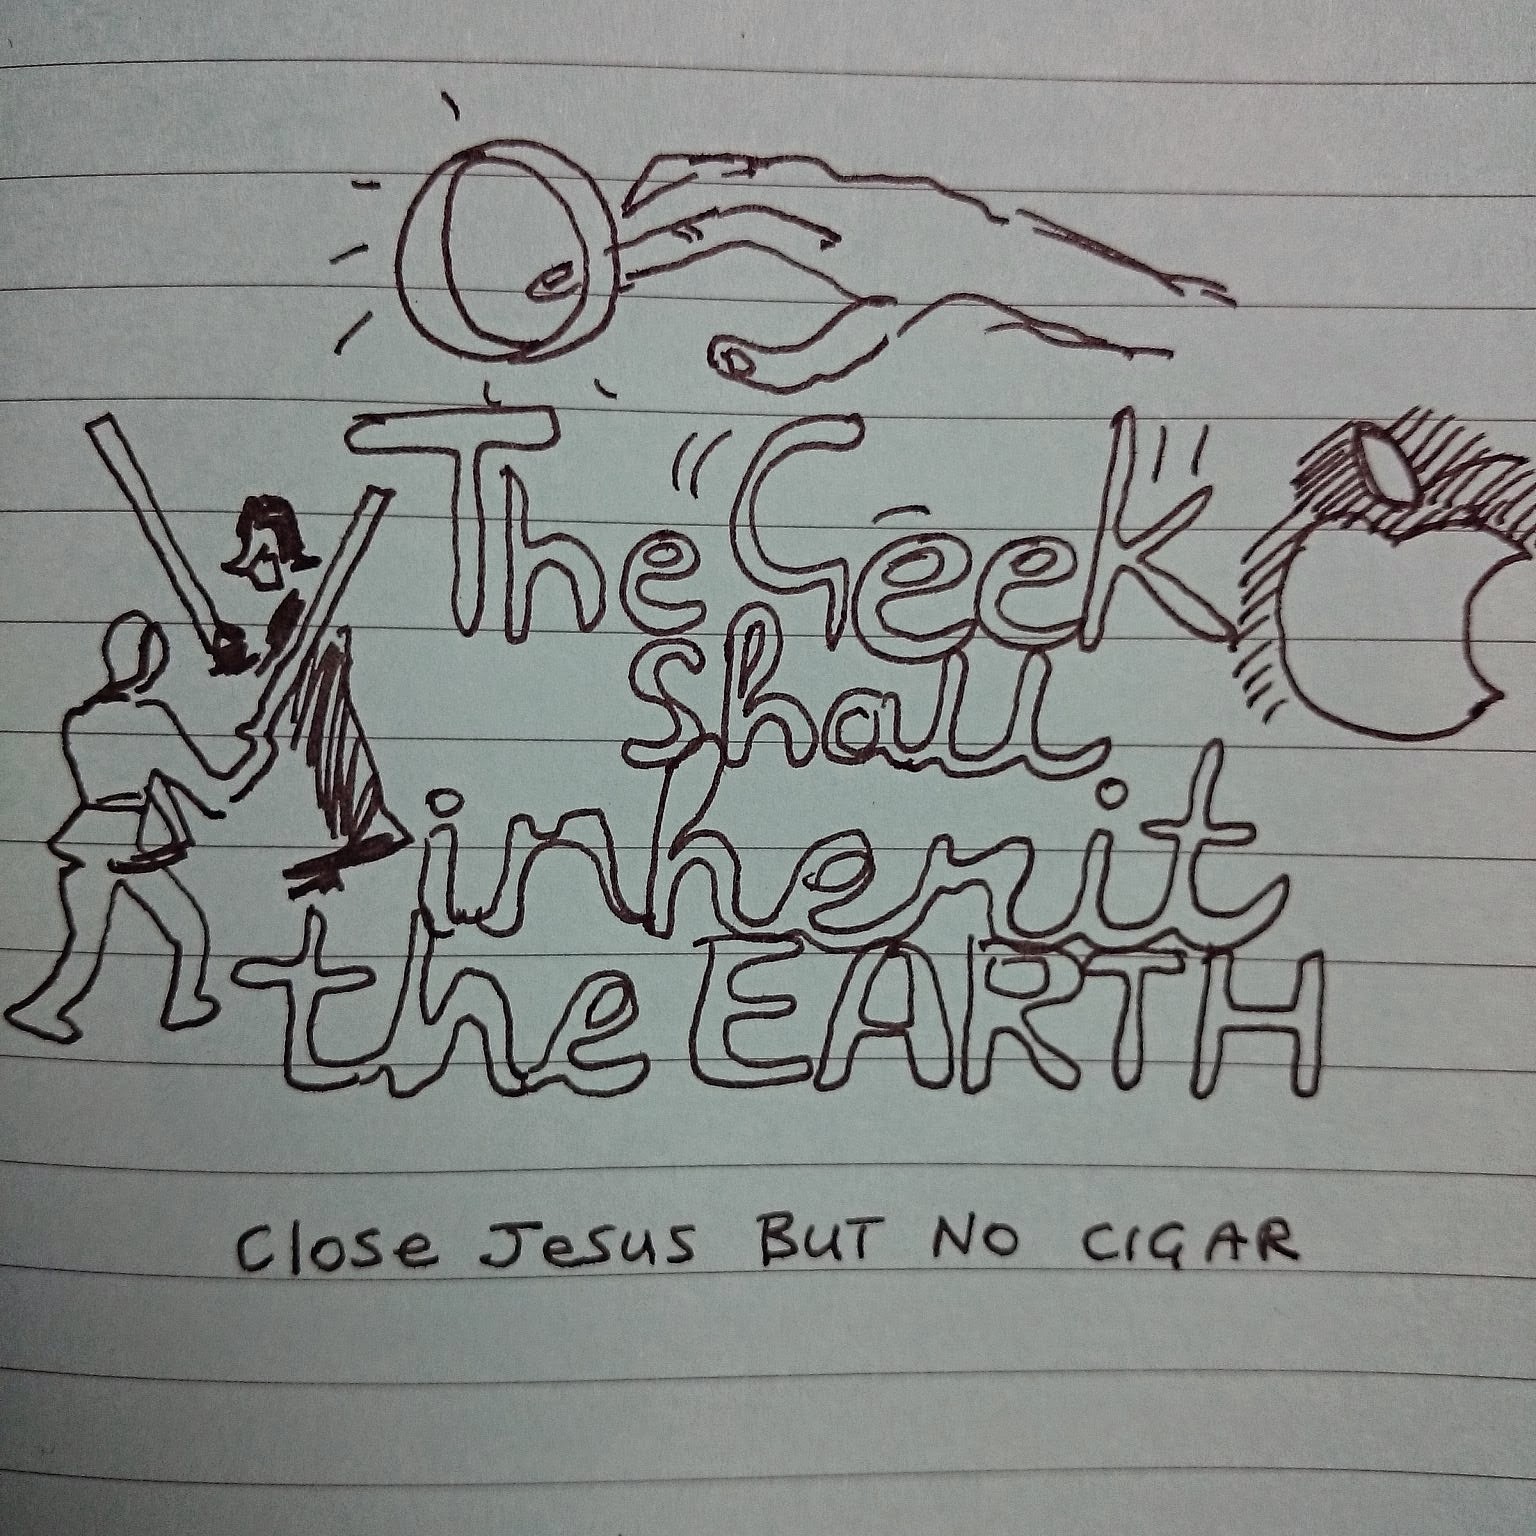 The Geek
shall
inherit
the EARTH
Close Jesus BUT NO CIGAR